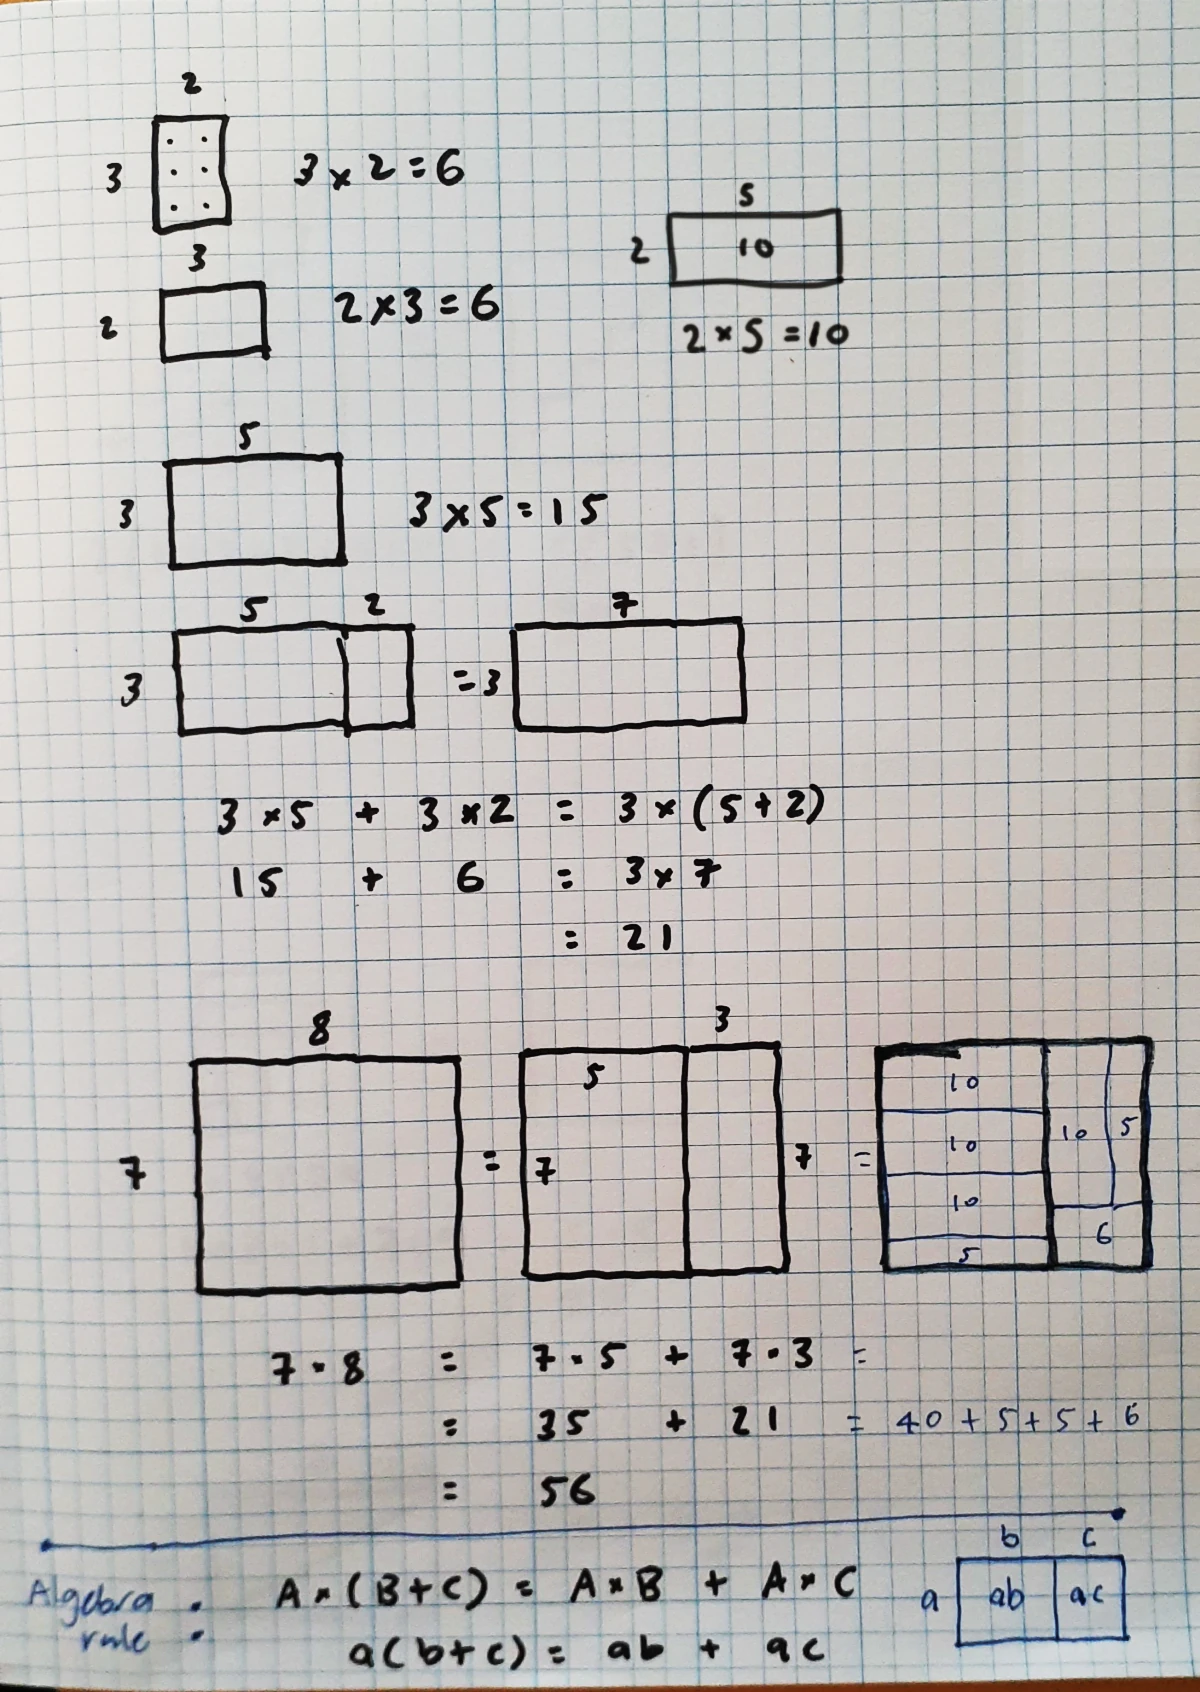 2
3
3 × 2 = 6
3
2
2 × 3 = 6
5
2
10
2 × 5 = 10
5
3
3 × 5 = 15
5 2
3
= 3
7
3 × 5 + 3 × 2 = 3 × (5 + 2)
15 + 6 = 3 × 7
= 21
8
7
=
3
5
7
7
=
10
10
10
5
10
5
6
7 · 8 = 7 · 5 + 7 · 3 =
= 35 + 21 = 40 + 5 + 5 + 6
= 56
Algebra rule :
A × (B + C) = A × B + A × C
a(b + c) = ab + ac
b c
a
ab ac